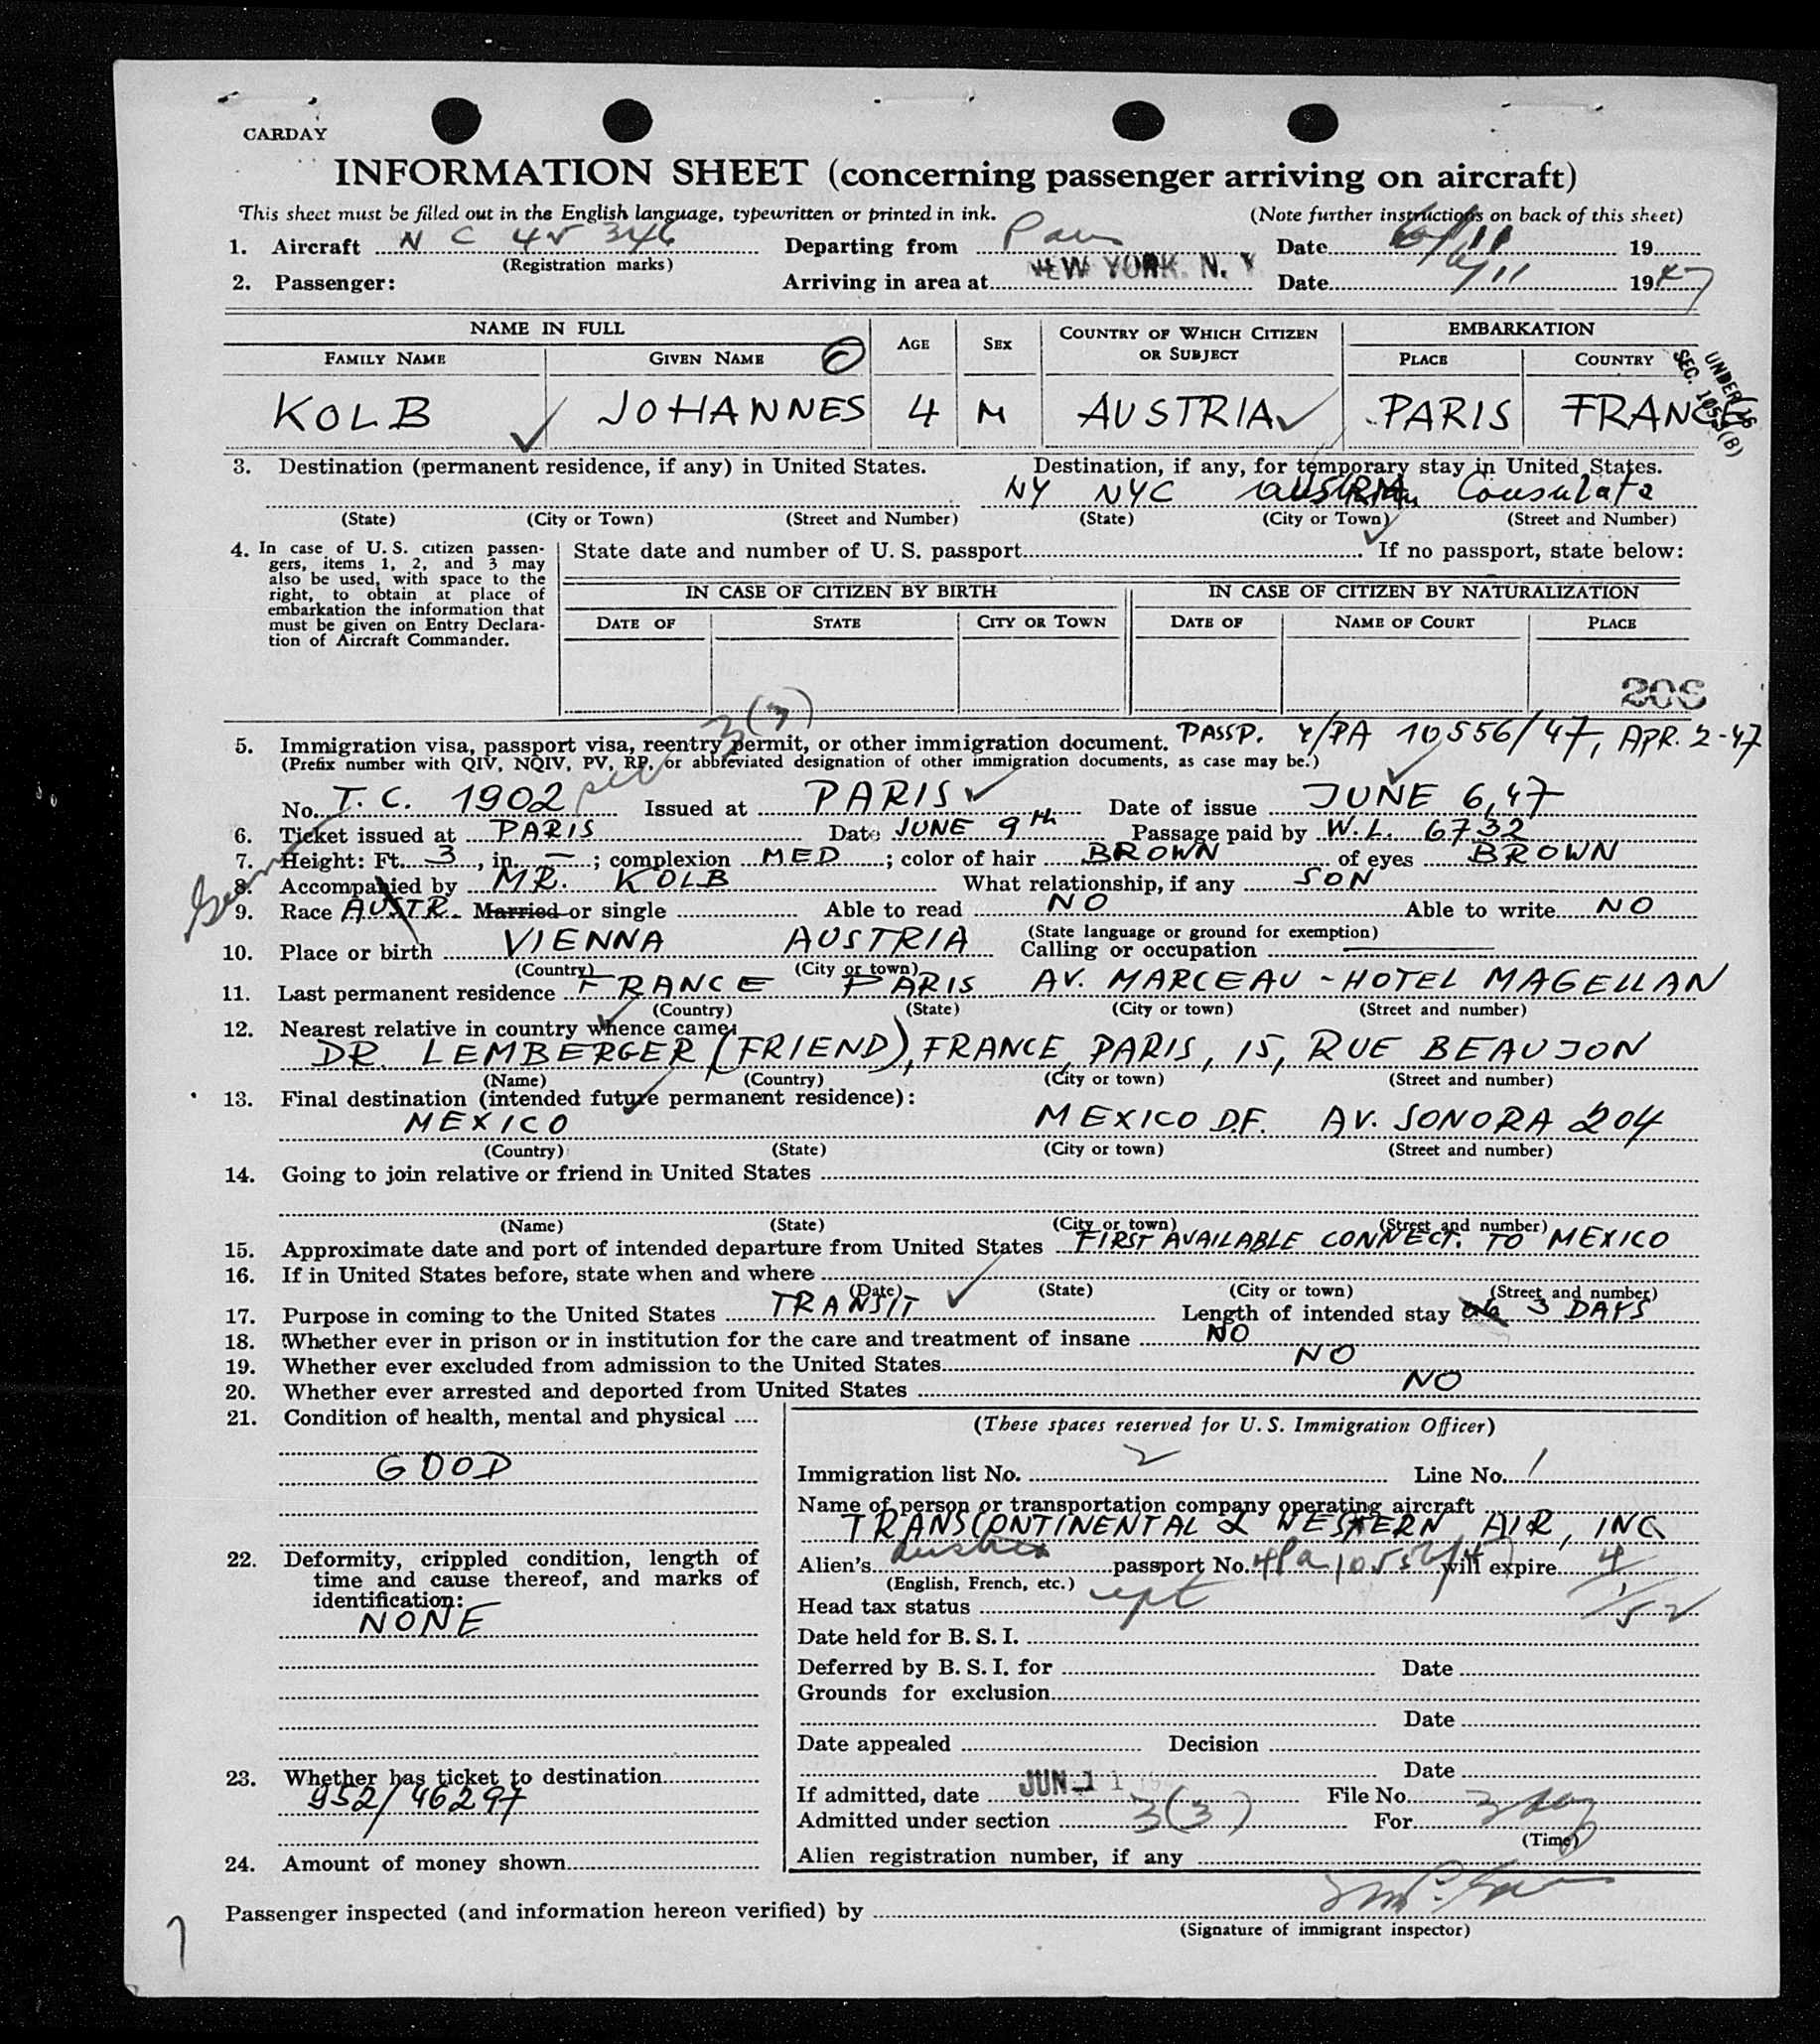 CARDAY
INFORMATION SHEET (concerning passenger arriving on aircraft)
This sheet must be filled out in the English language, typewritten or printed in ink. (Note further instructions on back of this sheet)
1. Aircraft N C 45 346 Departing from Paris Date 6/11 19
(Registration marks)
2. Passenger: Arriving in area at NEW YORK, N. Y. Date 6/11 1947
NAME IN FULL AGE SEX COUNTRY OF WHICH CITIZEN OR SUBJECT EMBARKATION
FAMILY NAME GIVEN NAME PLACE COUNTRY
UNDER 16
SEC. 1055(B)
KOLB JOHANNES 4 M AUSTRIA PARIS FRANCE
3. Destination (permanent residence, if any) in United States. Destination, if any, for temporary stay in United States.
NY NYC Austrian Consulate
(State) (City or Town) (Street and Number) (State) (City or Town) (Street and Number)
4. In case of U. S. citizen passen-
gers, items 1, 2, and 3 may
also be used, with space to the
right, to obtain at place of
embarkation the information that
must be given on Entry Declara-
tion of Aircraft Commander.
State date and number of U. S. passport If no passport, state below:
IN CASE OF CITIZEN BY BIRTH IN CASE OF CITIZEN BY NATURALIZATION
DATE OF STATE CITY OR TOWN DATE OF NAME OF COURT PLACE
3(3)
5. Immigration visa, passport visa, reentry permit, or other immigration document. PASSP. 4/PA 10556/47, APR. 2-47
(Prefix number with QIV, NQIV, PV, RP, or abbreviated designation of other immigration documents, as case may be.)
No. T. C. 1902 Issued at PARIS Date of issue JUNE 6, 47
6. Ticket issued at PARIS Date JUNE 9th Passage paid by W.L. 6732
7. Height: Ft. 3, in. —; complexion MED; color of hair BROWN of eyes BROWN
8. Accompanied by MR. KOLB What relationship, if any SON
9. Race AUSTR. Married or single Able to read NO Able to write NO
(State language or ground for exemption)
10. Place or birth VIENNA AUSTRIA Calling or occupation
(Country) (City or town)
11. Last permanent residence FRANCE PARIS AV. MARCEAU - HOTEL MAGELLAN
(Country) (State) (City or town) (Street and number)
12. Nearest relative in country whence came:
DR. LEMBERGER (FRIEND), FRANCE, PARIS, 15, RUE BEAUJON
(Name) (Country) (City or town) (Street and number)
13. Final destination (intended future permanent residence):
MEXICO MEXICO D.F. AV. SONORA 204
(Country) (State) (City or town) (Street and number)
14. Going to join relative or friend in United States
(Name) (State) (City or town) (Street and number)
15. Approximate date and port of intended departure from United States FIRST AVAILABLE CONNECT. TO MEXICO
16. If in United States before, state when and where
(Date) (State) (City or town) (Street and number)
17. Purpose in coming to the United States TRANSIT Length of intended stay 3 DAYS
18. Whether ever in prison or in institution for the care and treatment of insane NO
19. Whether ever excluded from admission to the United States NO
20. Whether ever arrested and deported from United States NO
21. Condition of health, mental and physical
GOOD
22. Deformity, crippled condition, length of
time and cause thereof, and marks of
identification:
NONE
23. Whether has ticket to destination
952/46297
24. Amount of money shown
(These spaces reserved for U. S. Immigration Officer)
Immigration list No. 2 Line No. 1
Name of person or transportation company operating aircraft
TRANSCONTINENTAL & WESTERN AIR, INC
Alien's Austria passport No. 4Pa 10556/47 will expire 4/1/52
(English, French, etc.)
Head tax status
Date held for B. S. I.
Deferred by B. S. I. for Date
Grounds for exclusion
Date
Date appealed Decision
Date
If admitted, date JUN 11 File No.
Admitted under section 3(3) For 3 day
(Time)
Alien registration number, if any
Passenger inspected (and information hereon verified) by
(Signature of immigrant inspector)